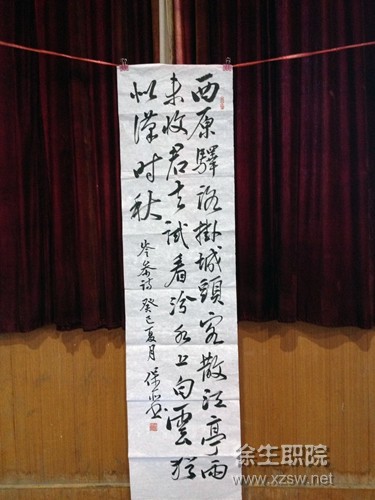 西原驛路掛城頭客散江亭雨
未收君去試看汾水上白雲猶
似漢时秋
岑參诗 癸巳夏月 保
徐生职院
www.xzsw.net